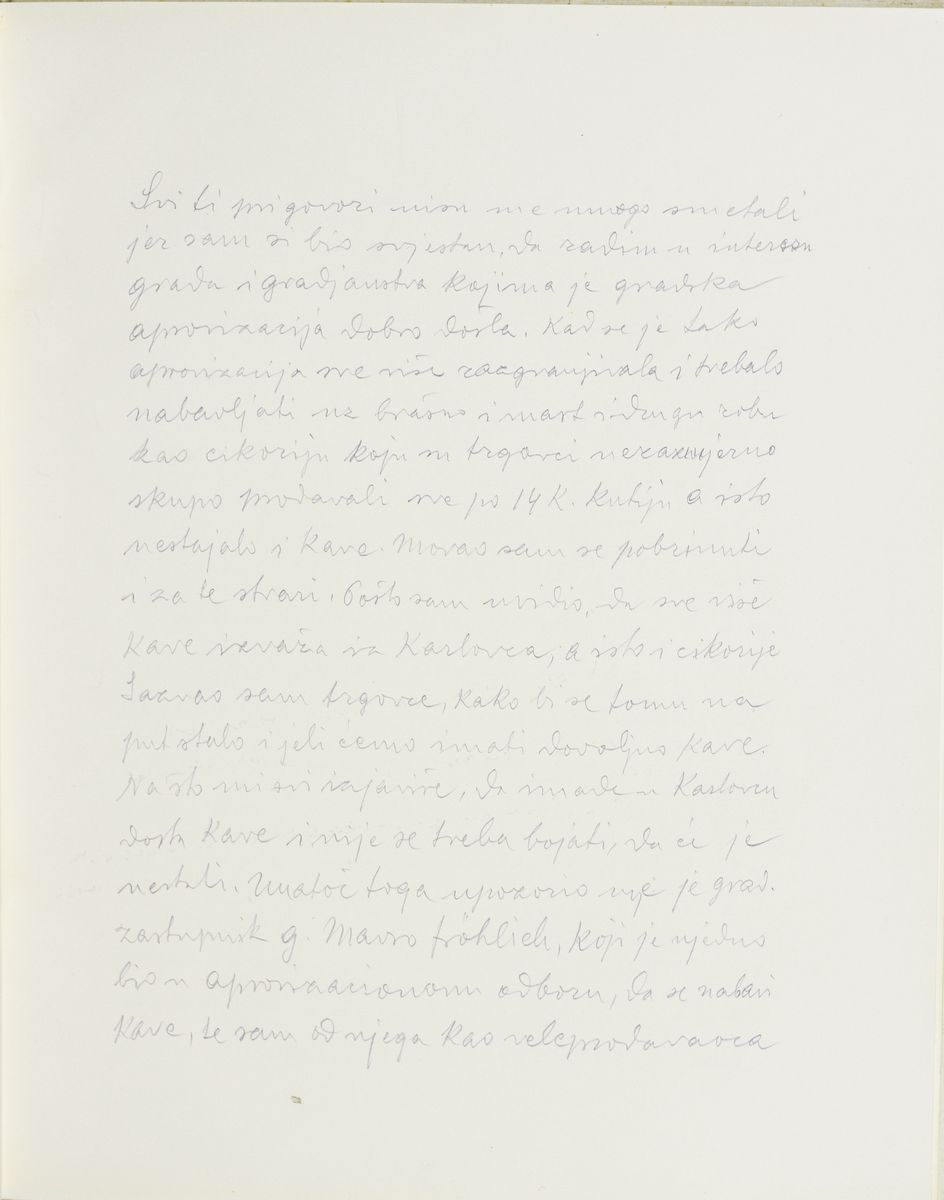 Svi ti prigovori nisu me mnogo smetali
jer sam si bio svjestan, da radim u interesu
grada i gradjanstva kojima je gradska
aprovizacija dobro došla. Kad se je tako
aprovizacija sve više razgranjivala i trebalo
nabavljati uz brašno i mast i drugu robu
kao cikoriju koju su trgovci nerazmjerno
skupo prodavali sve po 14 K. kutiju a isto
nestajalo i kave. Morao sam se pobrinuti
i za te stvari. Pošto sam uvidio, da sve više
Kave izvaža iz Karlovca, a isto i cikorije
Sazvao sam trgovce, kako bi se tomu na
put stalo i jeli ćemo imati dovoljno kave.
Na što mi svi izjaviše, da imade u Karlovcu
dosta Kave i nije se treba bojati, da će je
nestati. Unatoč toga upozorio me je grad.
zastupnik g. Mavro Fröhlich, koji je ujedno
bio u aprovizacionomu odboru, da se nabavi
Kave, te sam od njega kao veleprodavaoca